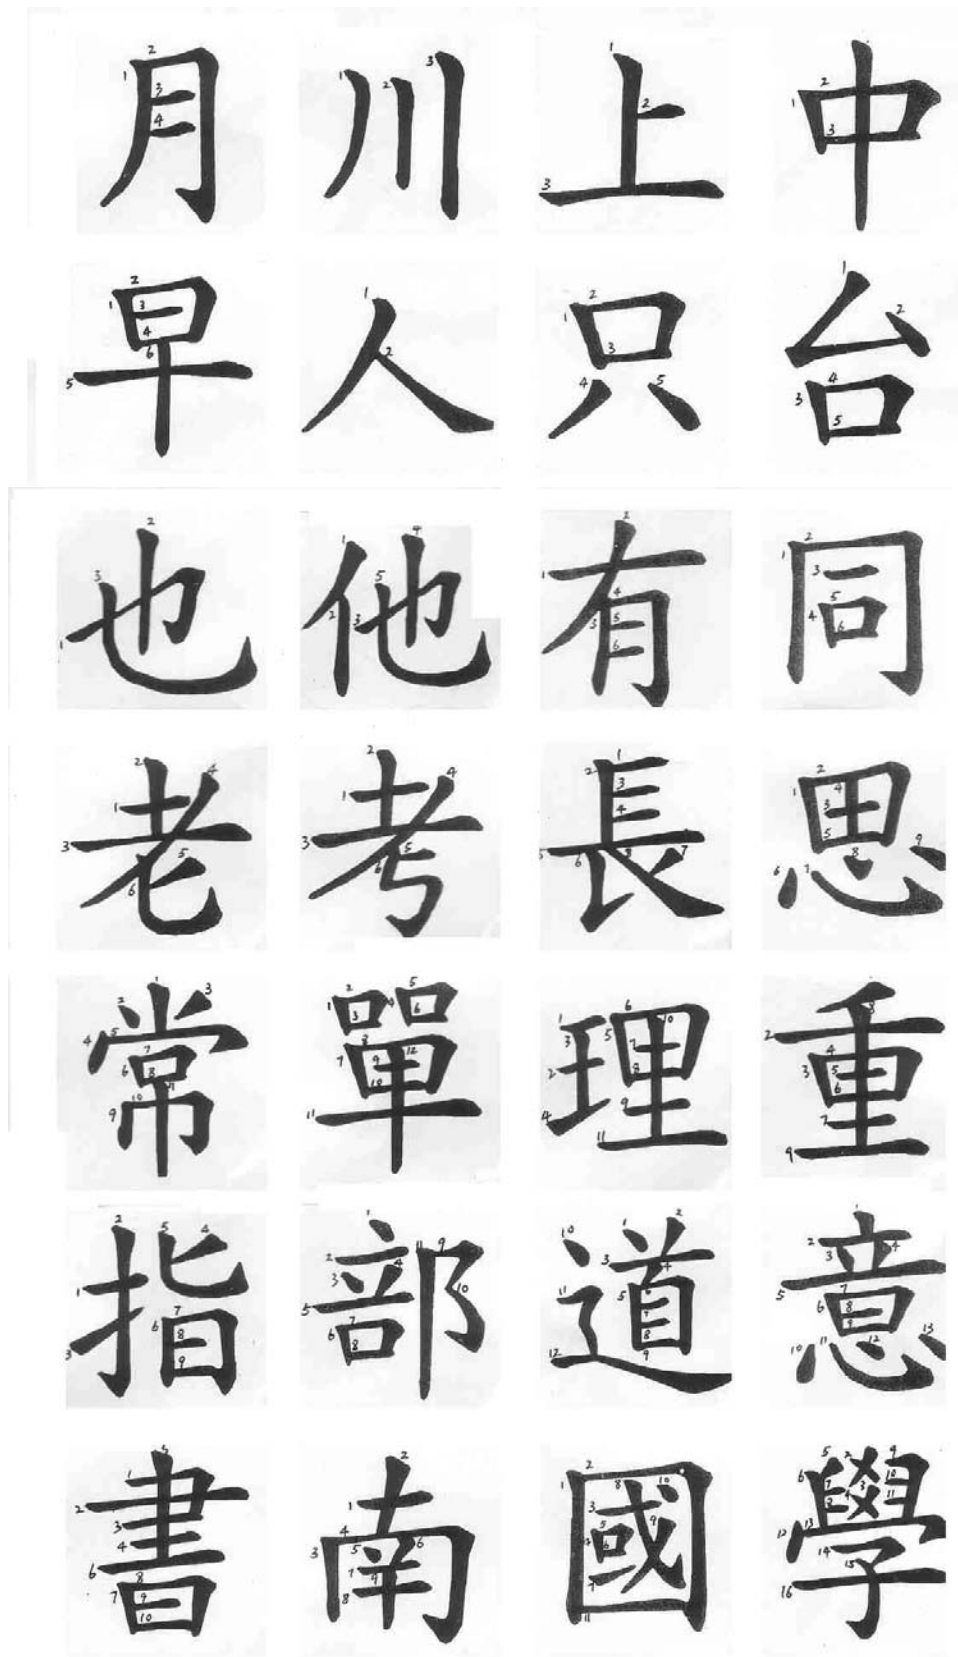 月 川 上 中
早 人 只 台
也 他 有 同
老 考 長 思
常 單 理 重
指 部 道 意
書 南 國 學